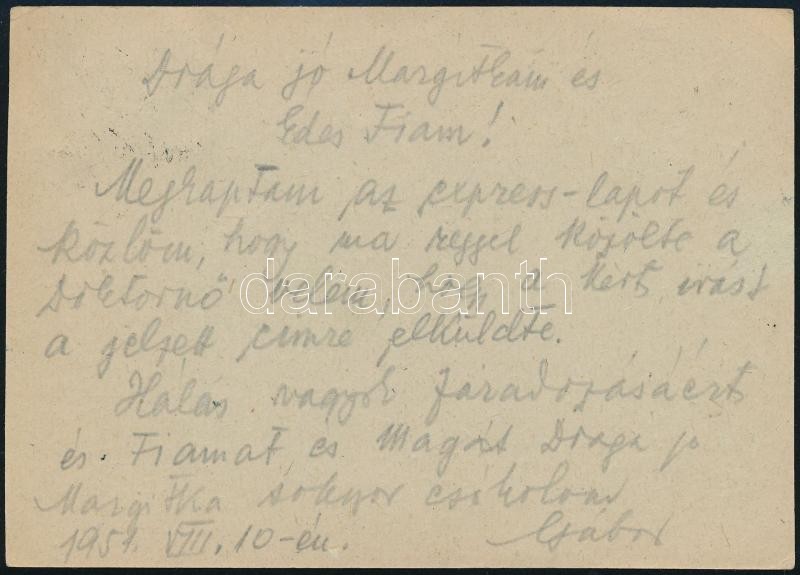 Drága jó Margitkám és
Édes Fiam!
Megkaptam az express-lapot és
közlöm, hogy ma reggel közölte a
Doktornő velem, hogy a kért írást
a jelzett címre elküldte.
Hálás vagyok fáradozásáért
és Fiamat és Magát Drága jó
Margitka sokszor csókolom
1951. VIII. 10-én. Gábor
darabanth